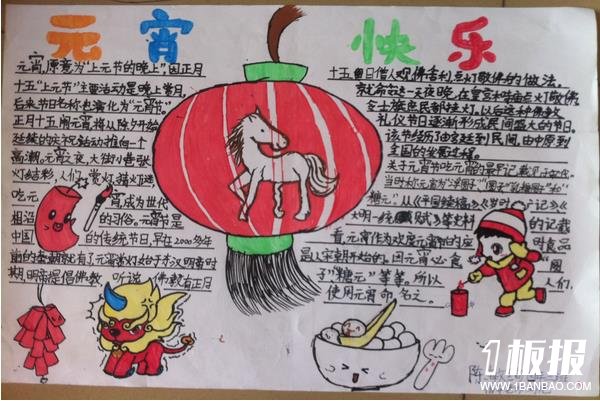 元宵 快乐
元宵,原意为"上元节的晚上",因正月
十五"上元节"主要活动是晚上赏月,
后来节日名称也演化为"元宵节"。
正月十五闹元宵,将从除夕开始
延续的庆祝活动推向一个
高潮。元宵之夜,大街小巷张
灯结彩,人们赏灯,猜灯谜,
吃元宵成为世代
相沿的习俗。元宵节是
中国的传统节日,早在2000多年
前的秦朝就有了元宵赏灯始于东汉明帝时
期,明帝提倡佛教,听说佛教有正月
十五日僧人观佛舍利,点灯敬佛的做法,
就命令这一天夜晚,在皇宫和寺庙点灯敬佛,
令士族庶民都挂灯,以后这种佛教
礼仪节日逐渐形成民间盛大的节日。
该节经历由宫廷到民间,由中原到
全国的发展过程。
关于元宵节吃元宵的最早记载见于宋代
当时称元宵为
糖元"。从《平园续稿》《岁时广记》
大明一统赋》等史料的记载
看元宵作为欢度元宵节的应时食品
是从宋朝开始的。因元宵必食"圆
子"糖元"等等。所以人们,
使用元宵命名之。
1板报
WWW.1BANBAO.COM